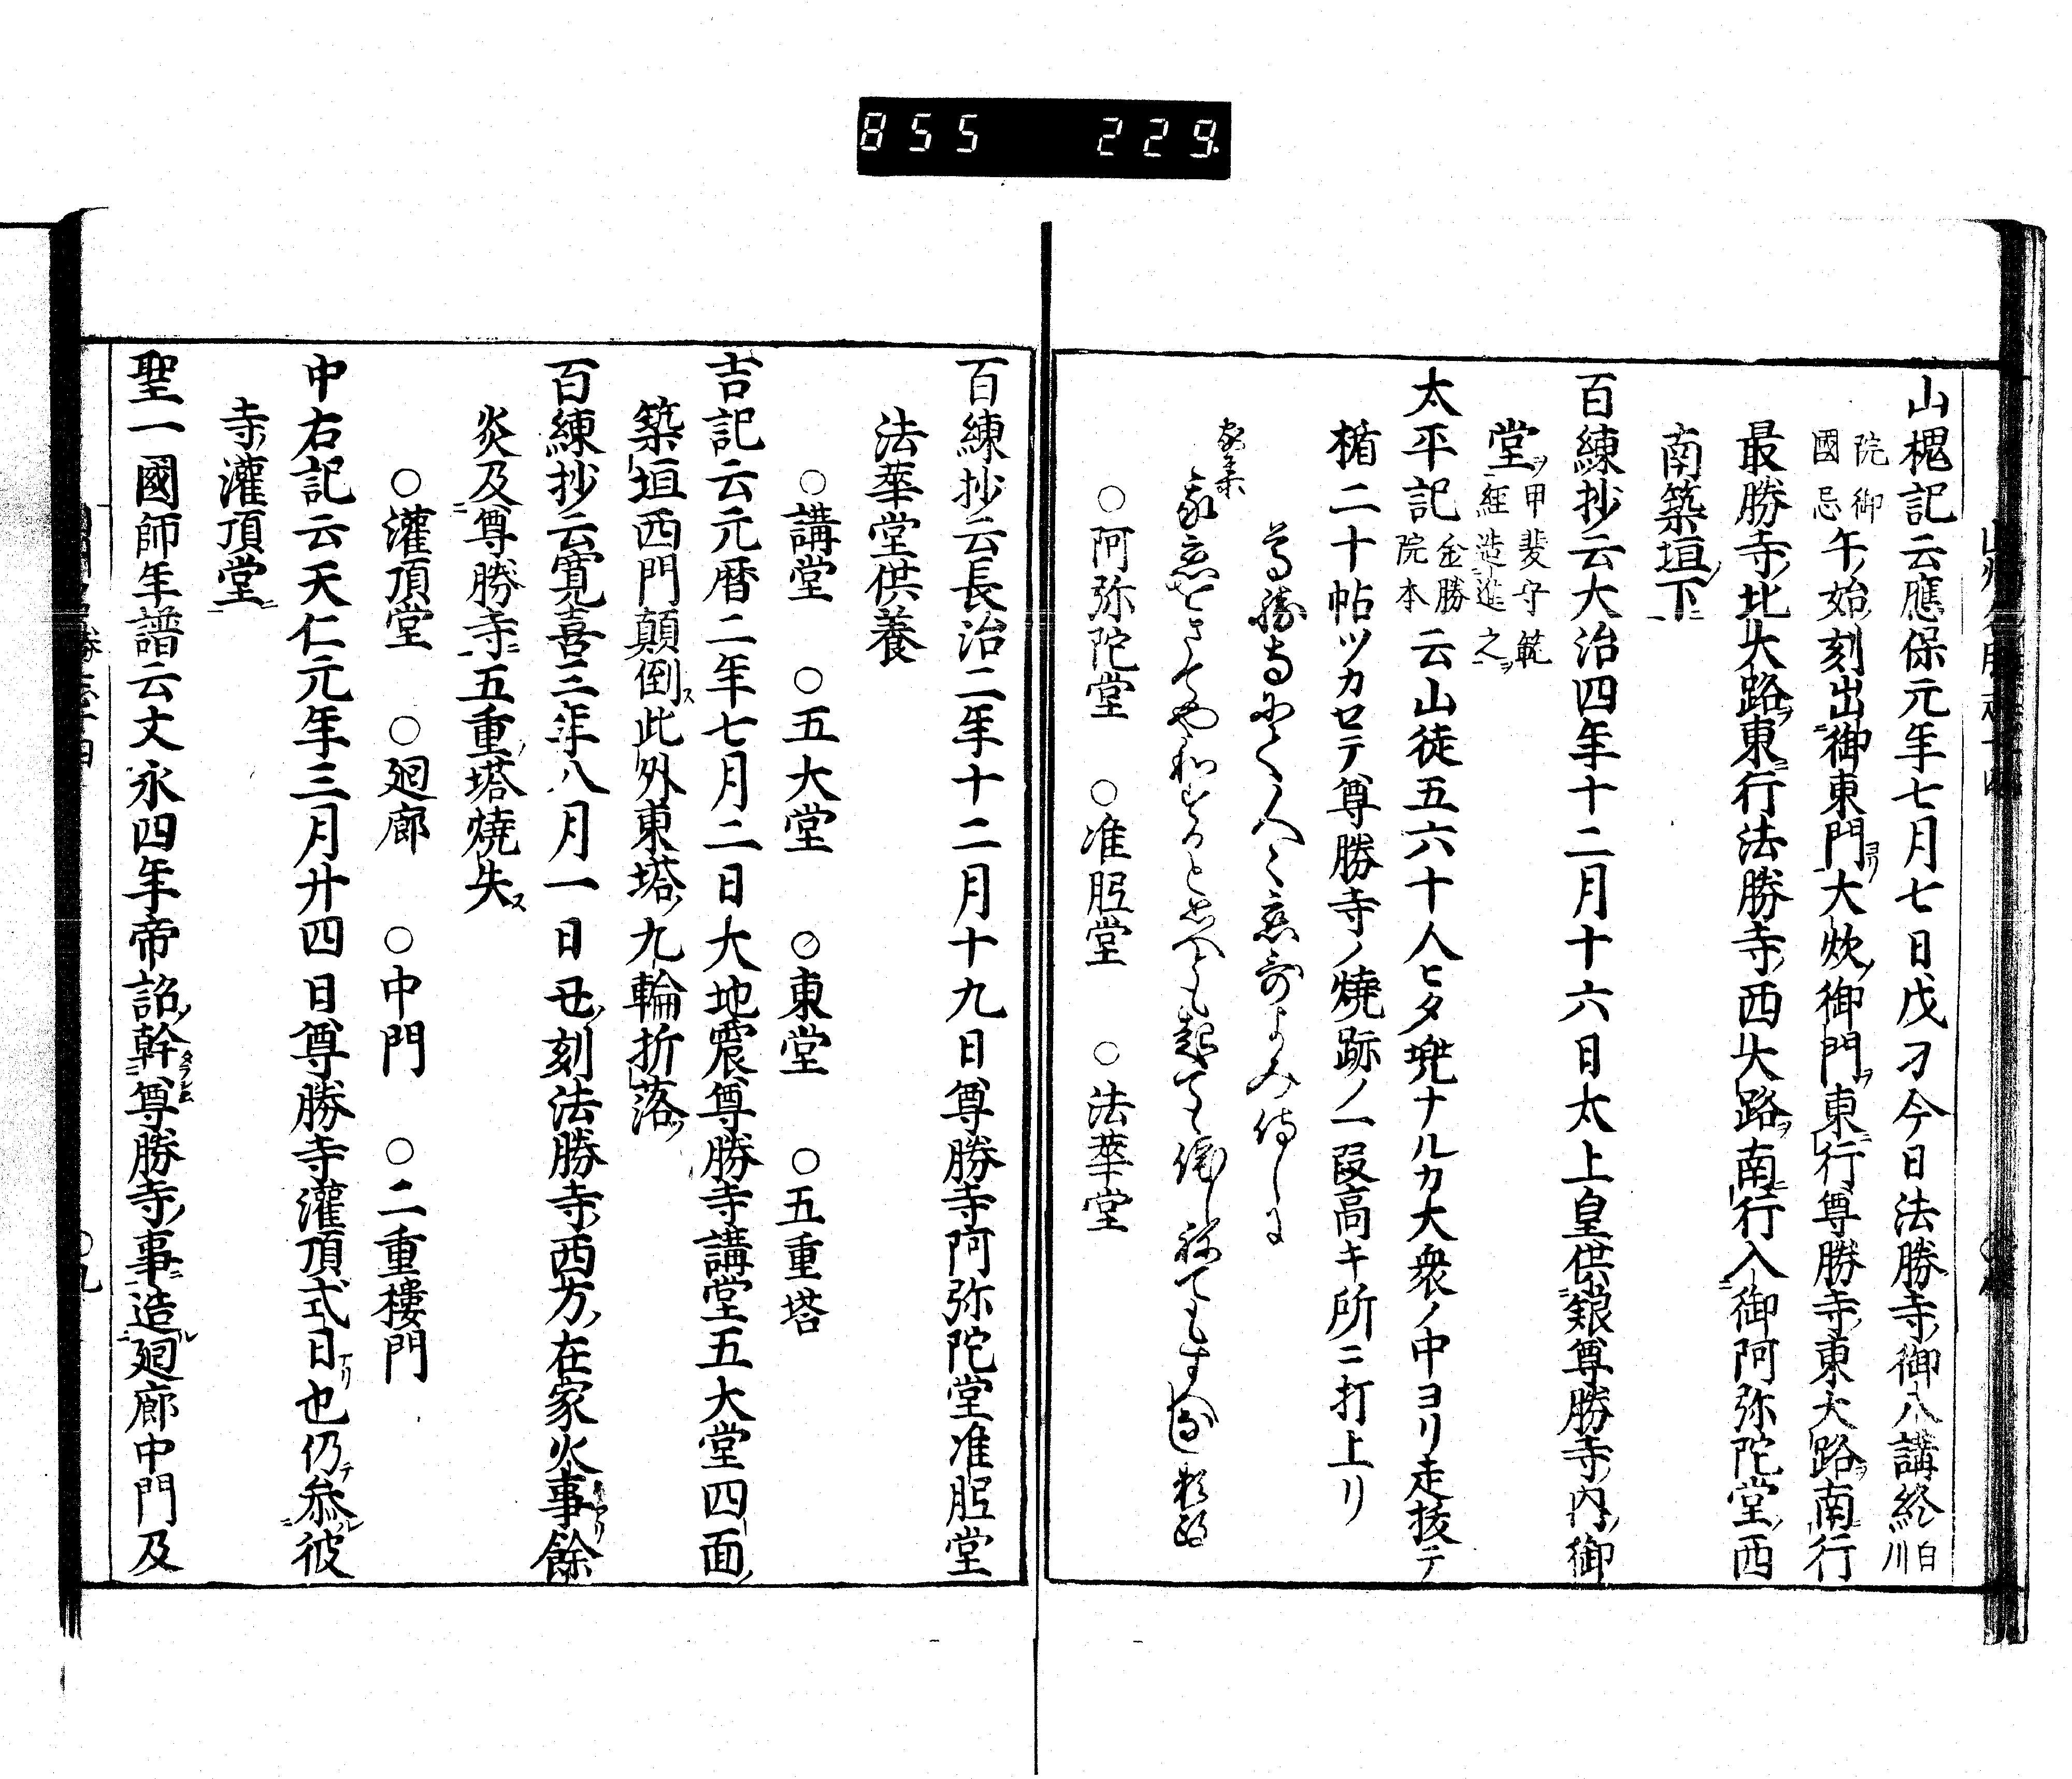 855 229
山槐記云應保元年七月七日戊刁今日法勝寺御八講終白川
院御國忌午ノ始刻出御東門ヨリ大炊御門ヲ東行尊勝寺東大路ヲ南行
最勝寺北大路ヲ東行法勝寺西大路ヲ南行入御阿弥陀堂ノ西
南築垣下
百練抄云大治四年十二月十六日太上皇供銀尊勝寺内御
堂ヲ甲斐守範經造進之
太平記金勝院本云山徒五六十人ヒタ兜ナルカ大衆ノ中ヨリ走抜テ
楯二十帖ツカセテ尊勝寺ノ燒跡ノ一段高キ所ニ打上リ
尊勝寺にて人〻恋哥よみ侍しに
家集
我恋はさてや和するとおへとも起ても臥しねてもす
○阿弥陀堂 ○准胝堂 ○法華堂
百練抄云長治二年十二月十九日尊勝寺阿弥陀堂准胝堂
法華堂供養
○講堂 ○五大堂 ○東堂 ○五重塔
吉記云元暦二年七月二日大地震尊勝寺講堂五大堂四面ノ
築垣西門顛倒ス此外東塔ノ九輪折落ツ
百練抄云寛喜三年八月一日丑ノ刻法勝寺ノ西方ノ在家火事餘
炎及尊勝寺ニ五重塔燒失ス
○灌頂堂 ○廻廊 ○中門 ○二重樓門
中右記云天仁元年三月廿四日尊勝寺灌頂式日ナリ也仍テ參彼
寺ノ灌頂堂ニ
聖一國師年譜云文永四年帝詔幹尊勝寺ノ事造廻廊中門及